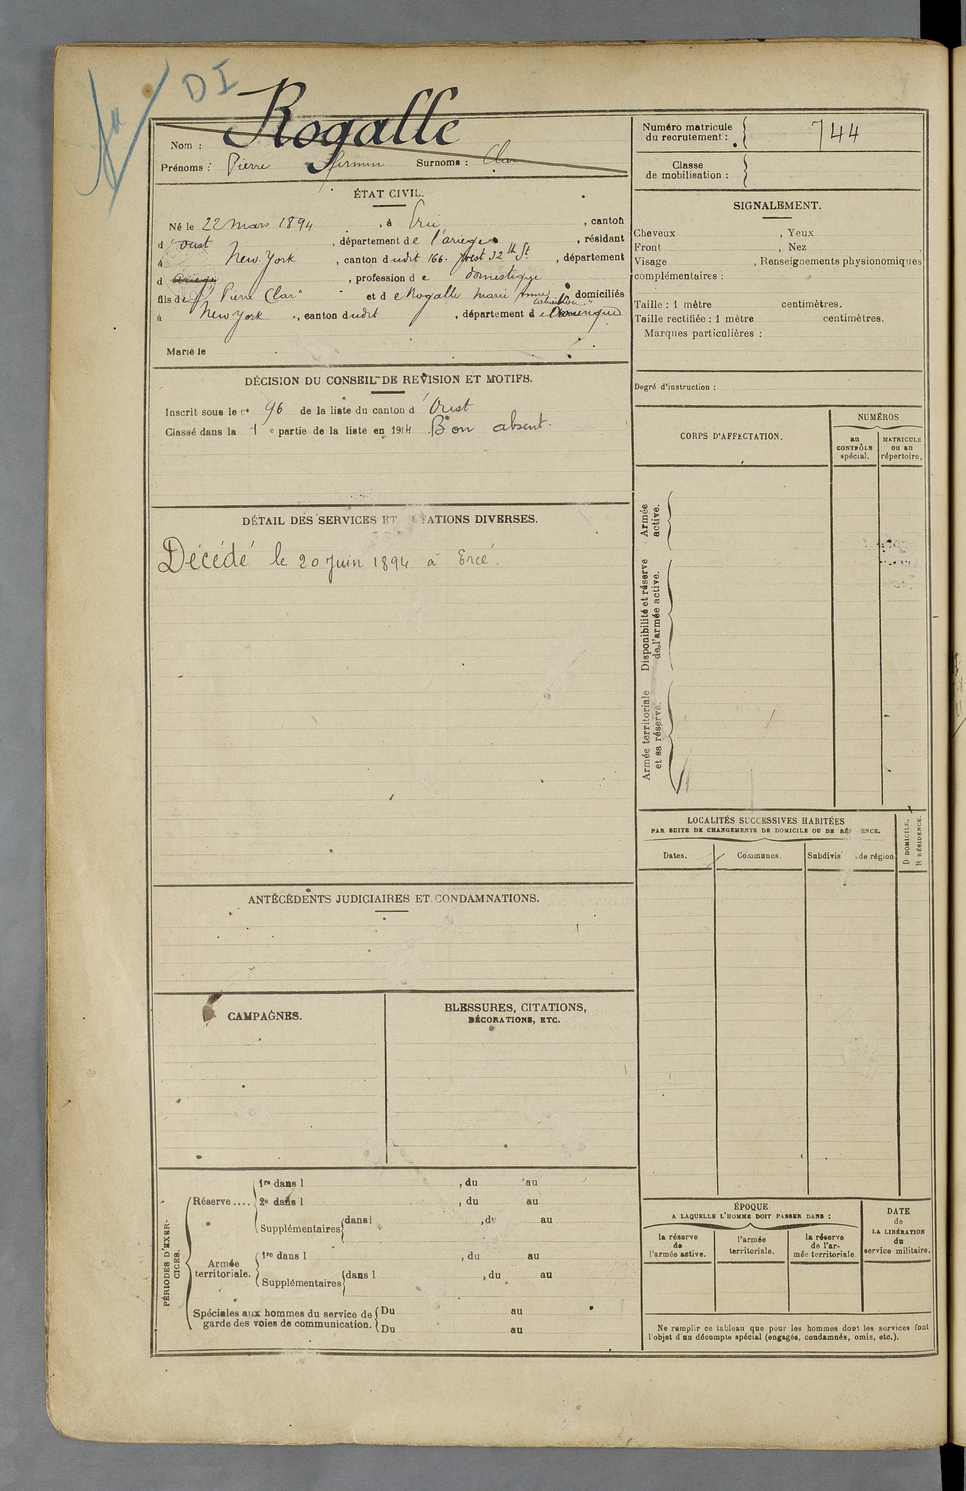 DI
Rogalle
Nom :
Prénoms : Pierre Firmin Surnoms : Clar
ÉTAT CIVIL.
Né le 22 Mars 1894, à Ercé, canton
d'Oust, département de l'ariège, résidant
à New York, canton dudit 166 West 32th St, département
d ariège, profession de domestique
fils de Pierre "Clar" et de Rogalle Marie Anne, domiciliés
à New York, canton dudit, département d
Marié le
DÉCISION DU CONSEIL DE REVISION ET MOTIFS.
Inscrit sous le no 96 de la liste du canton d'Oust
Classé dans la 1e partie de la liste en 1914 Bon absent.
DÉTAIL DES SERVICES ET MUTATIONS DIVERSES.
Décédé le 20 Juin 1894 à Ercé.
ANTÉCÉDENTS JUDICIAIRES ET CONDAMNATIONS.
CAMPAGNES.
BLESSURES, CITATIONS,
DÉCORATIONS, ETC.
PÉRIODES D'EXER-
CICES.
Réserve....
1re dans l , du au
2e dans l , du au
Supplémentaires dans l , du au
Armée
territoriale.
1re dans l , du au
Supplémentaires dans l , du au
Spéciales aux hommes du service de
garde des voies de communication.
Du au
Du au
Numéro matricule
du recrutement : 744
Classe
de mobilisation :
SIGNALEMENT.
Cheveux , Yeux
Front , Nez
Visage , Renseignements physionomiques
complémentaires :
Taille : 1 mètre centimètres.
Taille rectifiée : 1 mètre centimètres.
Marques particulières :
Degré d'instruction :
CORPS D'AFFECTATION.
NUMÉROS
au
CONTRÔLE
spécial.
MATRICULE
ou au
répertoire.
Armée
active.
Disponibilité et réserve
de l'armée active.
Armée territoriale
et sa réserve.
LOCALITÉS SUCCESSIVES HABITÉES
PAR SUITE DE CHANGEMENTS DE DOMICILE OU DE RÉSIDENCE.
Dates.
Communes.
Subdivis de région
D DOMICILE.
R RÉSIDENCE.
ÉPOQUE
A LAQUELLE L'HOMME DOIT PASSER DANS :
la réserve
de
l'armée active.
l'armée
territoriale.
la réserve
de l'ar-
mée territoriale.
DATE
de
LA LIBÉRATION
du
service militaire.
Ne remplir ce tableau que pour les hommes dont les services font
l'objet d'un décompte spécial (engagés, condamnés, omis, etc.).